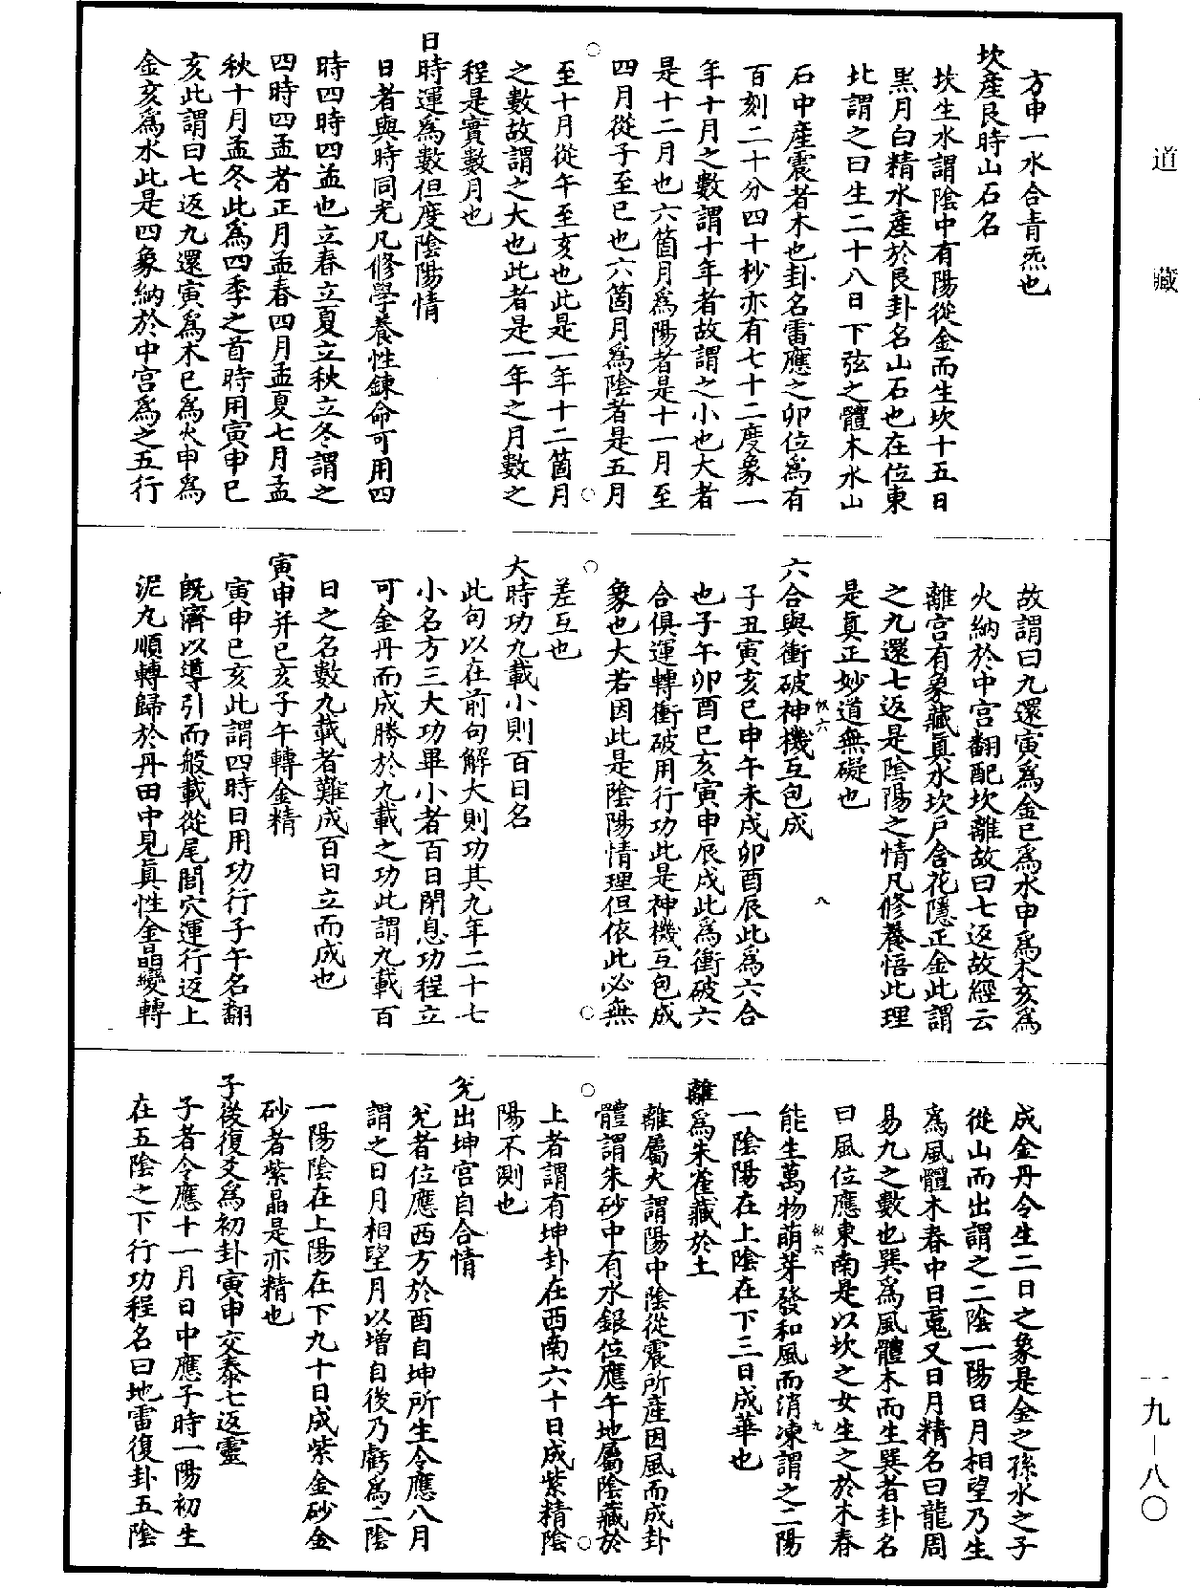 道藏
方申一水合青炁也
坎産艮時山石名
坎生水謂陰中有陽從金而生坎十五日
黑月白精水產於艮卦名山石也在位東
北謂之曰生二十八日下弦之體木水山
石中産震者木也卦名雷應之卯位爲有
百刻二十分四十杪亦有七十二度象一
年十月之數謂十年者故謂之小也大者
是十二月也六箇月爲陽者是十一月至
四月從子至巳也六箇月爲陰者是五月
至十月從午至亥也此是一年十二箇月
之數故謂之大也此者是一年之月數之
程是實數月也
日時運爲數但度陰陽情
日者與時同光凡修學養性鍊命可用四
時四時四孟也立春立夏立秋立冬謂之
四時四孟者正月孟春四月孟夏七月孟
秋十月孟冬此爲四季之首時用寅申巳
亥此謂曰七返九還寅爲木巳爲火申爲
金亥爲水此是四象納於中宮爲之五行
故謂曰九還寅爲金巳爲水申爲木亥爲
火納於中宮翻配坎離故曰七返故經云
離宮有象藏真水坎戶含花隱正金此謂
之九還七返是陰陽之情凡修養悟此理
是真正妙道無礙也
六合與衝破神機互包成
子丑寅亥巳申午未戌卯酉辰此爲六合
也子午卯酉巳亥寅申辰戌此爲衝破六
合俱運轉衝破用行功此是神機互包成
象也大若因此是陰陽情理但依此必無
差互也
大時功九載小則百日名
此句以在前句解大則功其九年二十七
小名方三大功畢小者百日閉息功程立
可金丹而成勝於九載之功此謂九載百
日之名數九載者難成百日立而成也
寅申并巳亥子午轉金精
寅申巳亥此謂四時日用功行子午名翻
旣濟以導引而般載從尾閭穴運行返上
泥丸順轉歸於丹田中見真性金晶變轉
成金丹令生二日之象是金之孫水之子
從山而出謂之二陰一陽日月相望乃生
爲風體木春中日菟又日月精名曰龍周
易九之數也巽爲風體木而生巽者卦名
曰風位應東南是以坎之女生之於木春
能生萬物萌芽發和風而消凍謂之二陽
一陰陽在上陰在下三日成華也
離爲朱雀藏於土
離屬火謂陽中陰從震所産因風而成卦
體謂朱砂中有水銀位應午地屬陰藏於
上者謂有坤卦在西南六十日成紫精陰
陽不測也
兌出坤宮自合情
兌者位應西方於酉自坤所生令應八月
謂之日月相望月以增自後乃虧爲二陰
一陽陰在上陽在下九十日成紫金砂金
砂者紫晶是亦精也
子後復爻爲初卦寅申交泰七返靈
子者令應十一月日中應子時一陽初生
在五陰之下行功程名曰地雷復卦五陰
一九－八〇